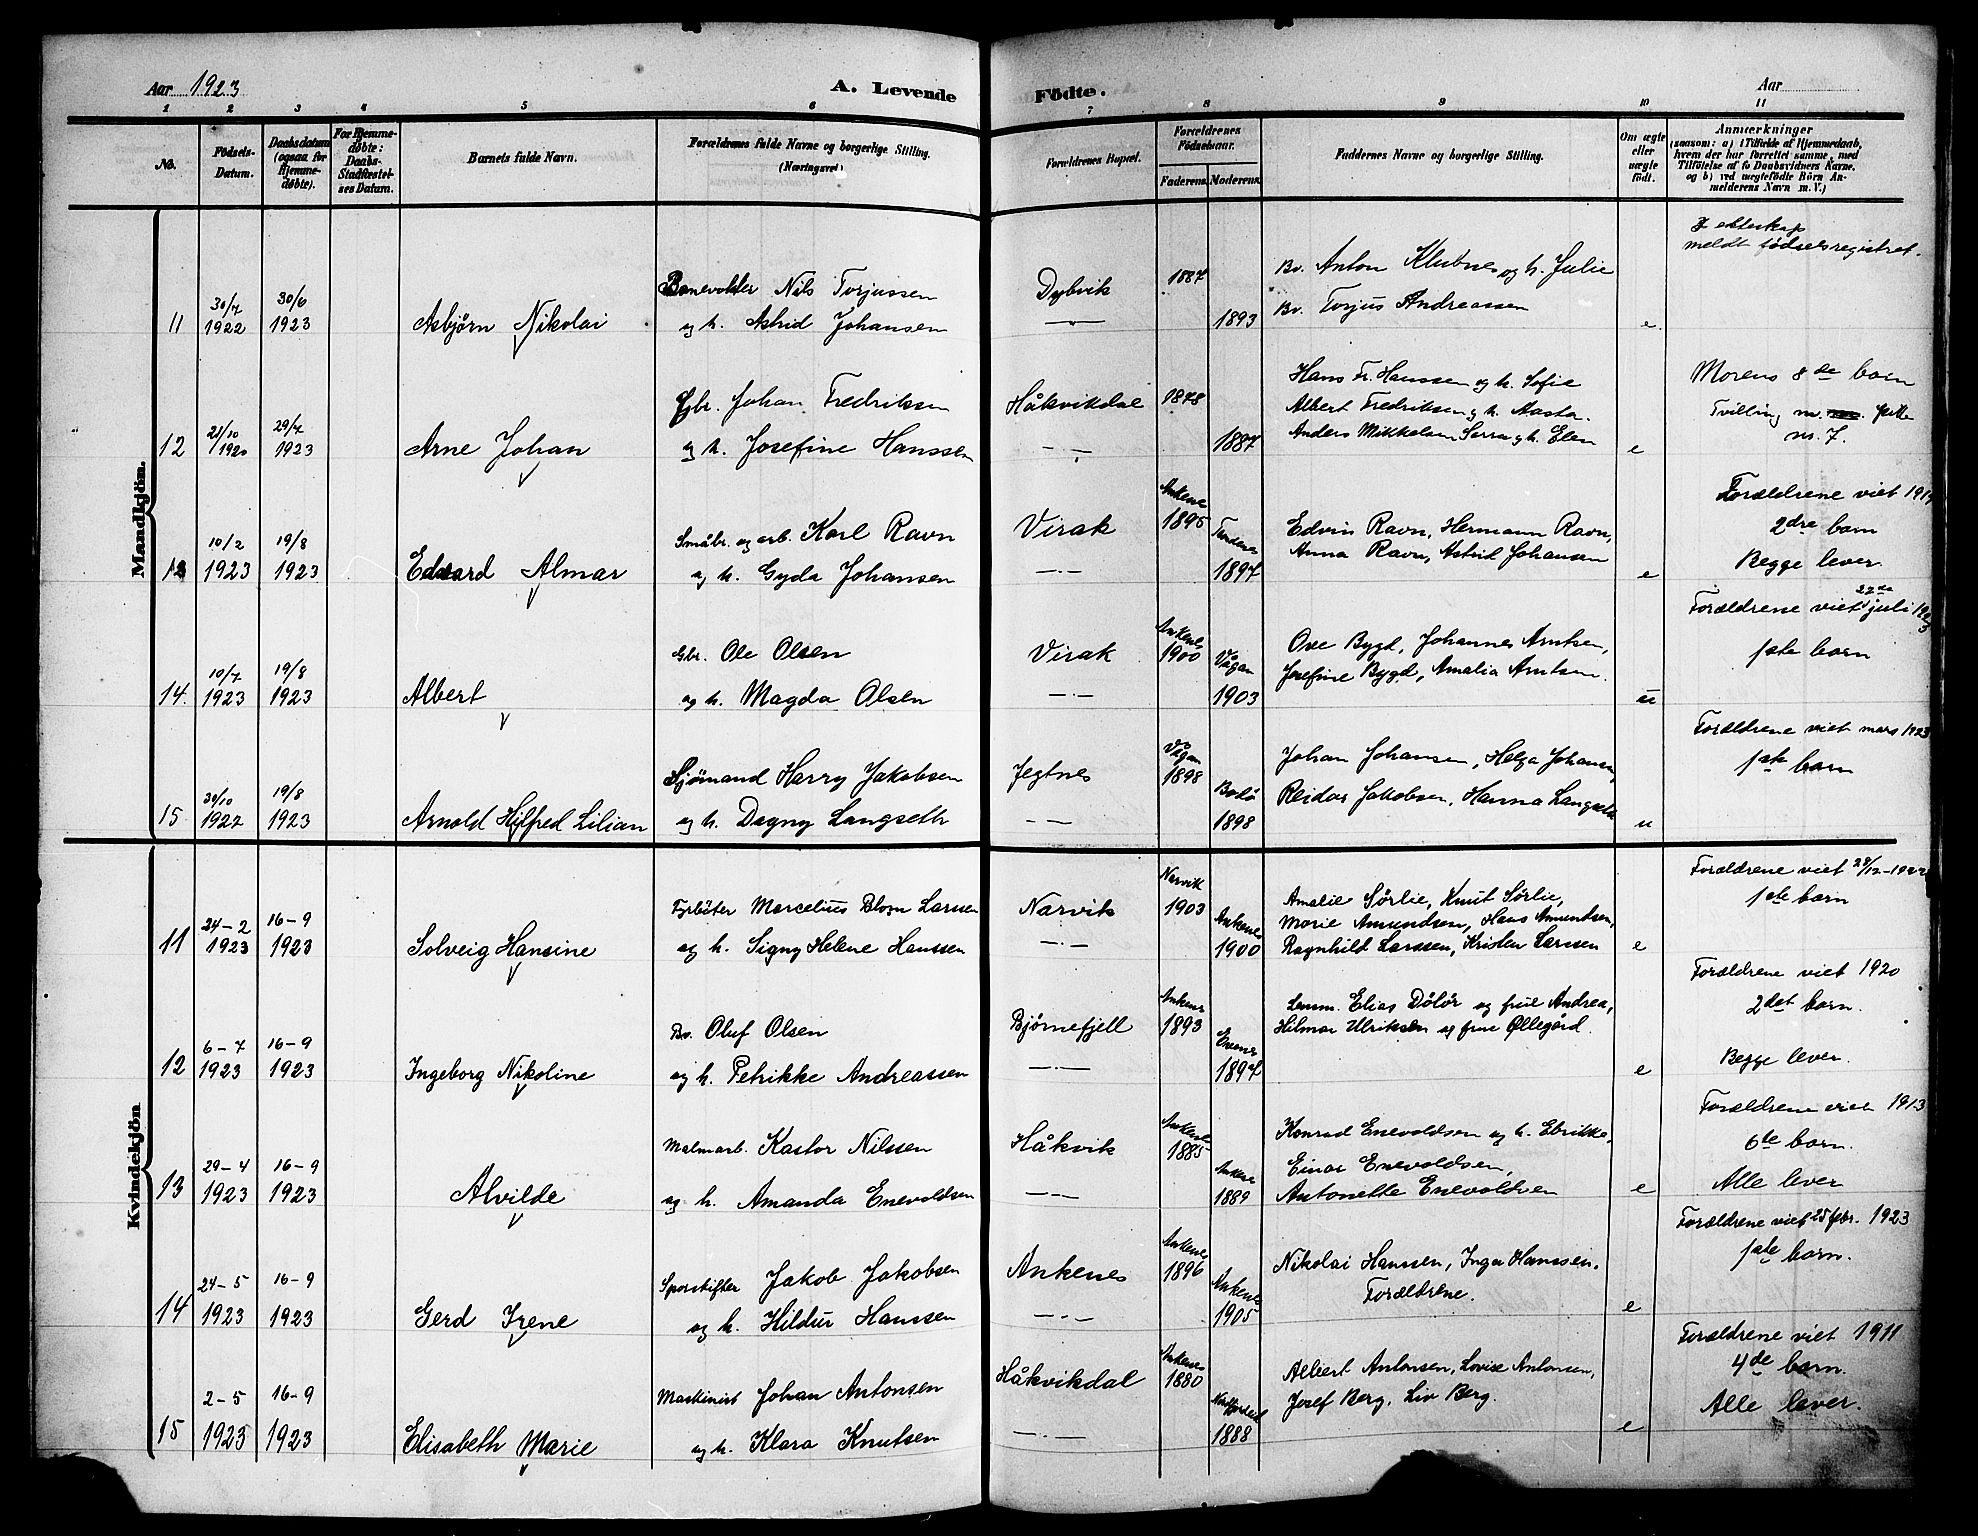 Aar 1923
A. Levende
Födte.
Aar
1 2 3 4 5 6 7 8 9 10 11
No.
Födsels-
Datum.
Daabsdatum
(ogsaa for
Hjemme-
døbte).
For Hjemme-
døbte:
Daabs-
Stadfæstel-
ses Datum.
Barnets fulde Navn.
Forældrenes fulde Navne og borgerlige Stilling.
(Næringsvei)
Forældrenes Bopæl.
Forældrenes
Födselsaar.
Faderens. Moderens.
Faddernes Navne og borgerlige Stilling.
Om ægte
eller
uægte
født.
Anmærkninger
(saasom: a) i Tilfælde af Hjemmedaab,
hvem der har forrettet samme, med
Tilföielse af to Daabsvidners Navne,
og b) ved uægtefødte Börn An-
melderens Navn m. V.)
Mandkjön.
11 30/7 1922 30/6 1923 Asbjørn Nikolai
Banevokter Nils Torjussen
og h. Astrid Johansen
Dybvik 1887
1893
Bv. Anton Klubnes og h. Julie
Bv. Torjus Andreassen
e.
meldt fødselsregistret.
12 21/10 1920 29/7 1923 Arne Johan
Gbr. Johan Fredriksen
og h. Josefine Hanssen
Håkvikdal 1878
1887
Hans Fr. Hanssen og h. Sofie
Albert Fredriksen og h. Aasta.
Anders Mikkelsen Sarra og h. Elen
e
Morens 8de barn
Tvilling m.
m. 7.
13 10/2 1923 19/8 1923 Edvard Almar
Småbr. og arb. Karl Ravn
og h. Gyda Johansen
Virak Ankenes 1895
1897
Edvin Ravn, Hermann Ravn,
Anna Ravn, Astrid Johansen
e
Forældrene viet 1919
2dre barn
Begge lever.
14. 10/7 1923 19/8 1923 Albert
Gbr. Ole Olsen
og h. Magda Olsen
Virak Ankenes 1900
Vågan 1903
Ove Bygd, Johannes Arntsen,
Josefine Bygd, Amalia Arntsen.
u
Forældrene viet 22de juli 1923
1ste barn
15 30/10 1922 19/8 1923 Arnold Hilfred Lilian
Sjømand Harry Jakobsen
og h. Dagny Langseth
Jegtnes Vågan 1898
Bodø 1898
Johan Johansen, Helga Johansen,
Reidar Jakobsen, Hanna Langseth
u
Forældrene viet mars 1923
1ste barn
Kvindekjön
11 24-2 1923 16-9 1923 Solveig Hansine
Fyrbøter Marcelius Blom Larssen
og h. Signy Helene Hanssen
Narvik Narvik 1903
Ankenes 1900
Amalie Sørlie, Knut Sørlie,
Marie Amundsen, Hans Amundsen,
Ragnhild Larssen, Kristen Larssen
e
Forældrene viet 28/12-1922
1ste barn
12 6-7 1923 16-9 1923 Ingeborg Nikoline
Bv. Oluf Olsen
og h. Petrikke Andreassen
Bjørnefjell Ankenes 1893
Evenes 1897
Lemm. Elias Dølør og frue Andrea,
Hilmar Ulriksen og frue Øllegård.
e
Forældrene viet 1920
2det barn.
Begge lever.
13 29-4 1923 16-9 1923 Alvilde
Malmarb. Kastor Nilssen
og h. Amanda Enevoldsen
Håkvik Ankenes 1885
Ankenes 1889
Konrad Enevoldsen og h. Ebrikke,
Einar Enevoldsen,
Antonette Enevoldsen
e
Forældrene viet 1913
6te barn.
Alle lever
14 24-5 1923 16-9 1923 Gerd Irene
Sporskifter Jakob Jakobsen
og h. Hildur Hanssen
Ankenes Ankenes 1896
Ankenes 1905
Nikolai Hanssen, Inga Hanssen.
Forældrene.
e
Forældrene viet 25 febr. 1923
1ste barn.
15 2-5 1923 16-9 1923 Elisabeth Marie
Maskinist Johan Antonsen
og h. Klara Knutsen
Håkvikdal Ankenes 1880
1888
Albert Antonsen, Lovise Antonsen,
Josef Berg, Liv Berg.
e
Forældrene viet 1911
4de barn.
Alle lever.